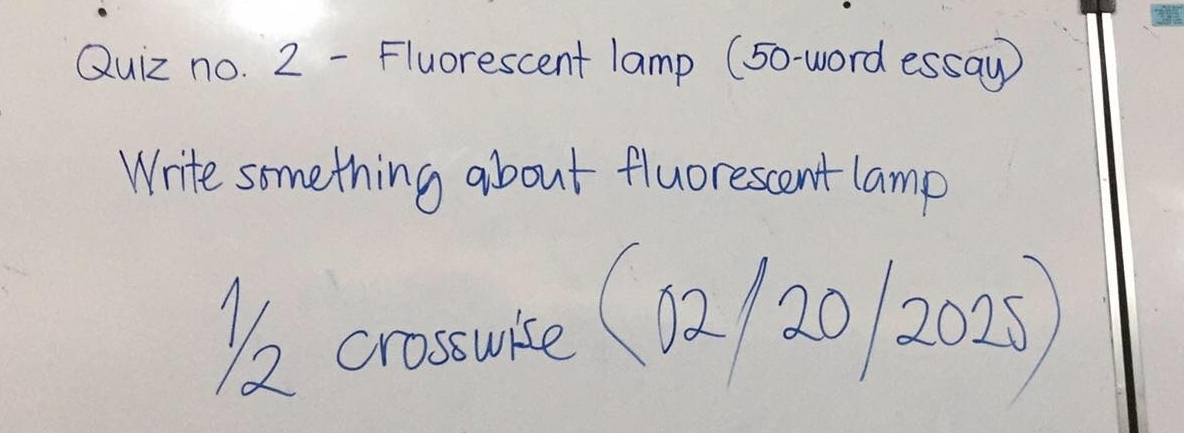 Quiz no. 2 - Fluorescent lamp (50-word essay)
Write something about fluorescent lamp
1/2 crosswise (02/20/2025)